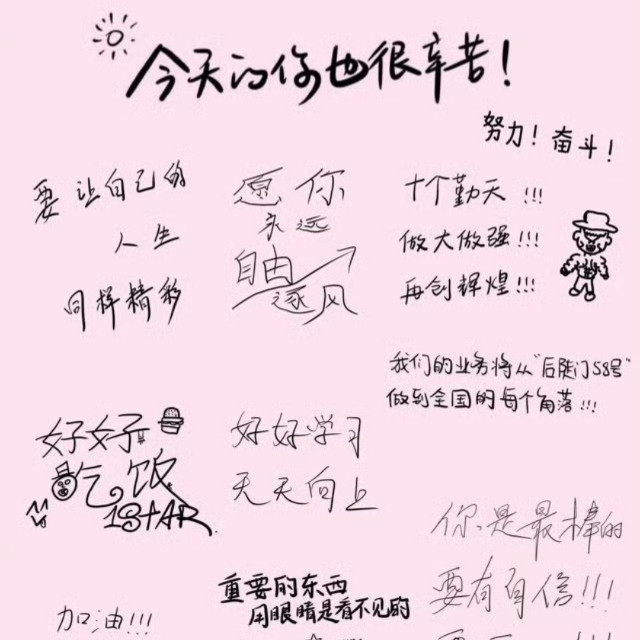 今天的你也很辛苦！
努力！奋斗！
要让自己的
人生
同样精彩
愿你
永远
自由
逐风
十个勤天!!!
做大做强!!!
再创辉煌!!!
我们的业务将从“后陡门58号”
做到全国的每个角落!!!
好好
吃饭
1STAR
好好学习
天天向上
你是最棒的
要有自信!!!
重要的东西
用眼睛是看不见的
加油!!!